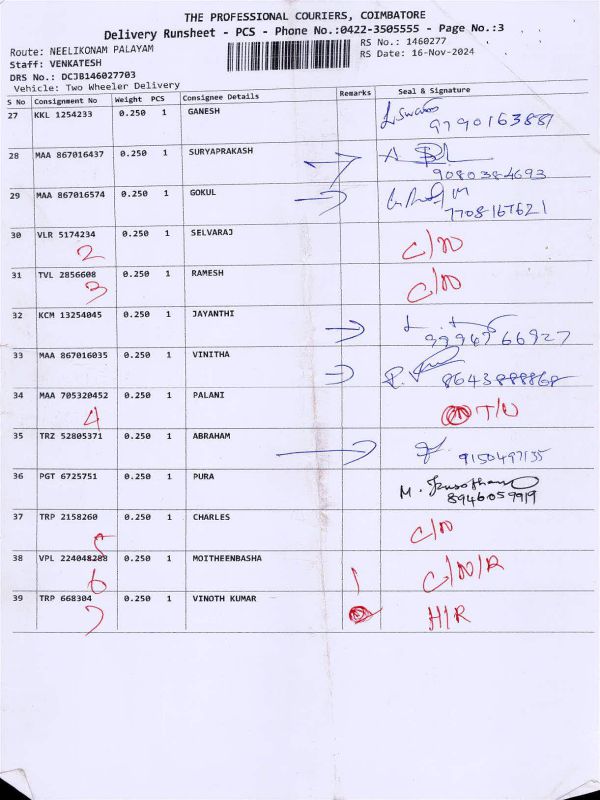 THE PROFESSIONAL COURIERS, COIMBATORE
Delivery Runsheet - PCS - Phone No.:0422-3505555 - Page No.:3
Route: NEELIKONAM PALAYAM
RS No.: 1460277
Staff: VENKATESH
RS Date: 16-Nov-2024
DRS No.: DCJB146027703
Vehicle: Two Wheeler Delivery
S No Consignment No Weight PCS Consignee Details Remarks Seal & Signature
27 KKL 1254233 0.250 1 GANESH
9790163881
28 MAA 867016437 0.250 1 SURYAPRAKASH
9080384693
29 MAA 867016574 0.250 1 GOKUL
7708167621
30 VLR 5174234 0.250 1 SELVARAJ C/N
2
31 TVL 2856608 0.250 1 RAMESH C/N
3
32 KCM 13254045 0.250 1 JAYANTHI
33 MAA 867016035 0.250 1 VINITHA
34 MAA 705320452 0.250 1 PALANI
4 T/U
35 TRZ 52805371 0.250 1 ABRAHAM
9150497135
36 PGT 6725751 0.250 1 PURA
8946059919
37 TRP 2158260 0.250 1 CHARLES C/N
5
38 VPL 224048288 0.250 1 MOITHEENBASHA C/N/R
6 1
39 TRP 668304 0.250 1 VINOTH KUMAR H/R
7